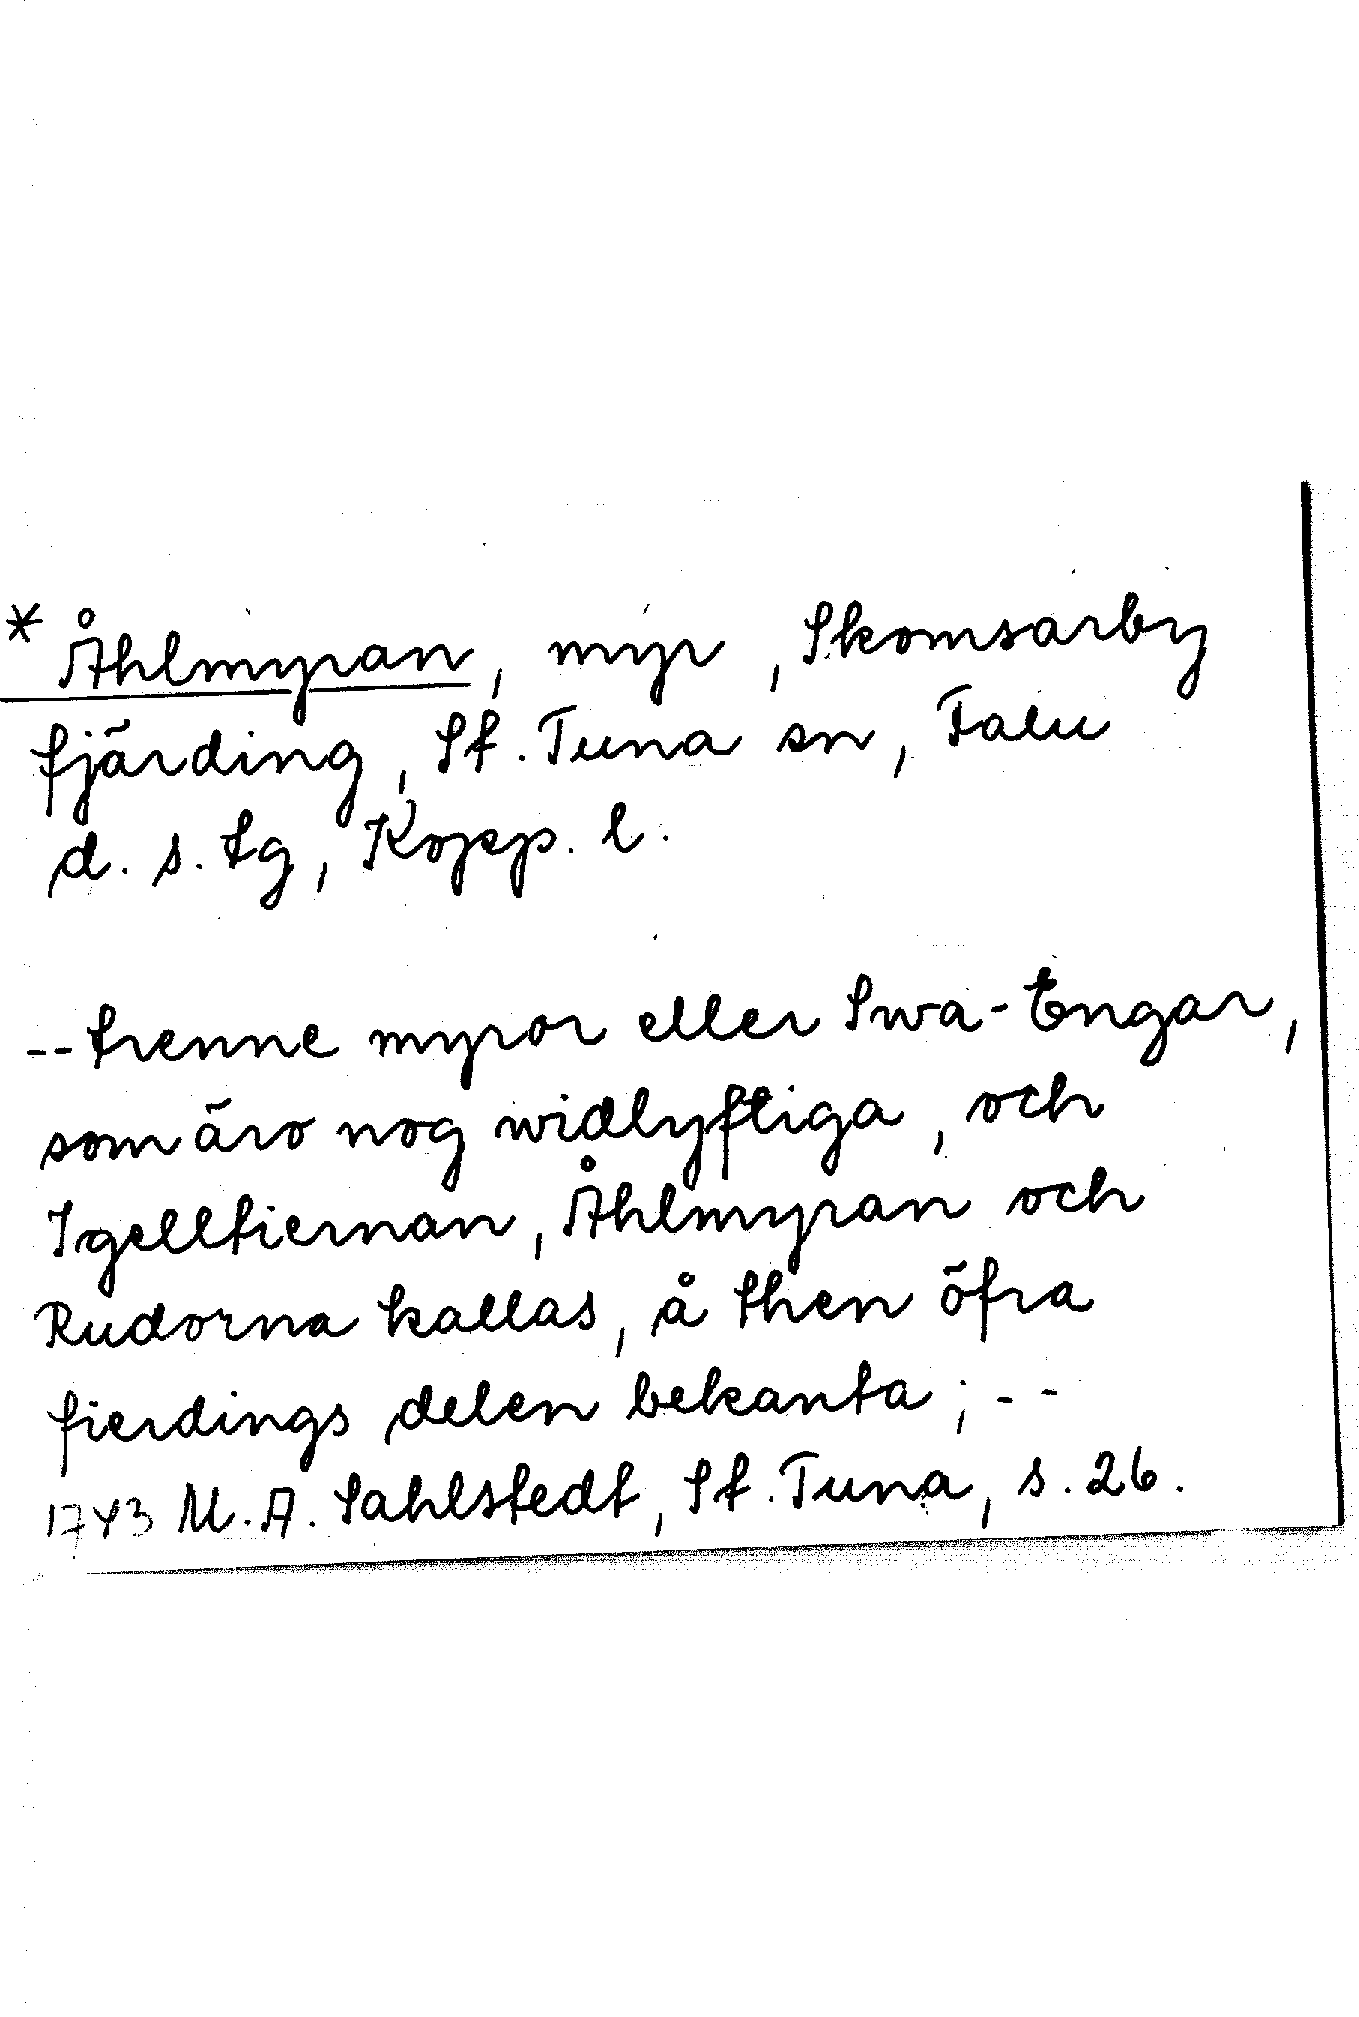 * Åhlmyran, myr, Skomsarby
fjärding, St. Tuna sn, Falu
d. s. tg, Kopp. l.
-- trenne myror eller Swa-Engar,
som äro nog widlyftiga, och
Igelltiernan, Åhlmyran och
Rudorna kallas, å then öfra
fierdings delen bekanta; --
1743 M. A. Sahlstedt, St. Tuna, s. 26.